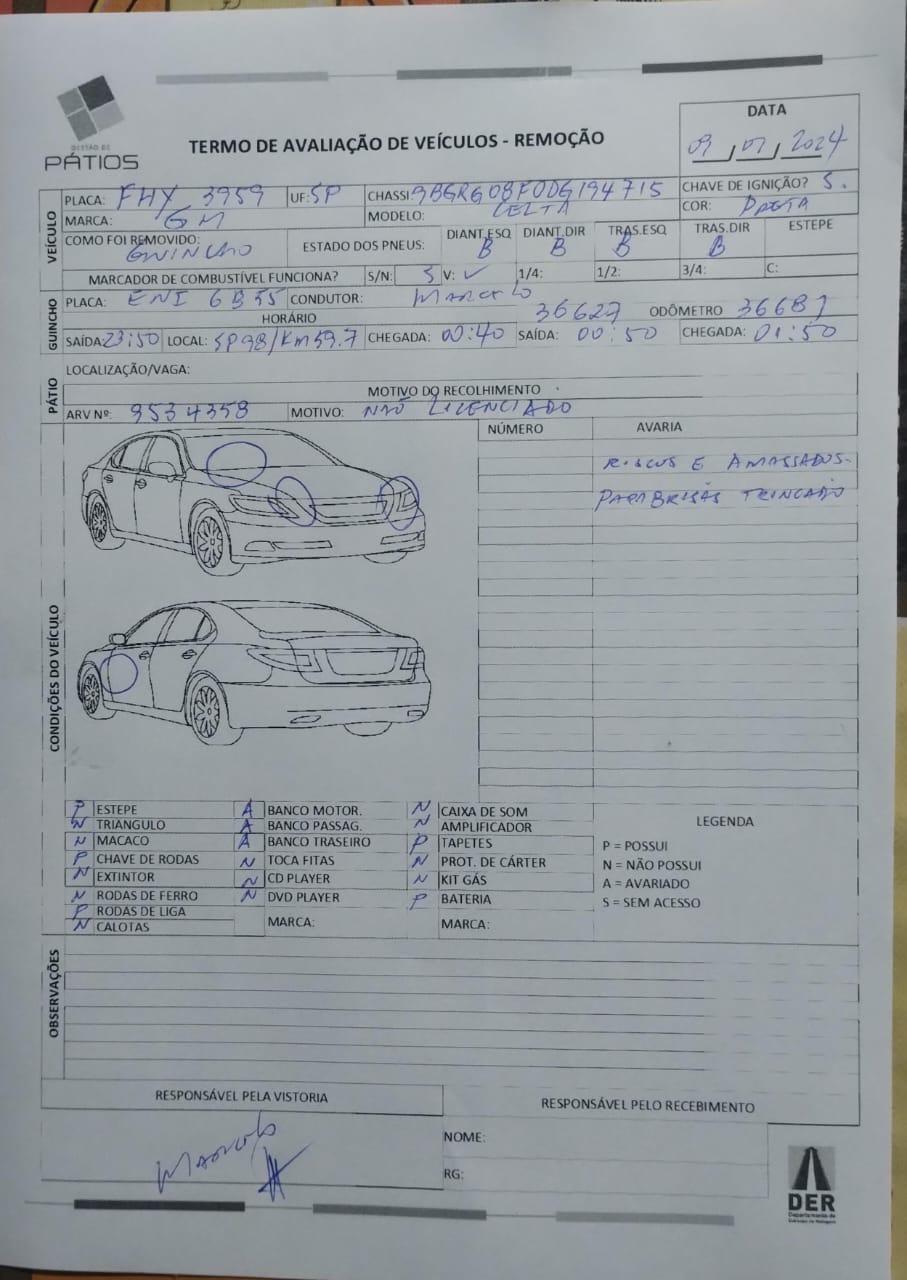 GESTÃO DE
PÁTIOS
TERMO DE AVALIAÇÃO DE VEÍCULOS - REMOÇÃO
DATA
09/07/2024
VEÍCULO
PLACA: FHY 3959 UF: SP CHASSI 9BGRG08F0DG194715 CHAVE DE IGNIÇÃO? S.
MARCA: GM MODELO: CELTA COR: PRETA
COMO FOI REMOVIDO: GUINCHO ESTADO DOS PNEUS: DIANT.ESQ B DIANT.DIR B TRAS.ESQ B TRAS.DIR B ESTEPE
MARCADOR DE COMBUSTÍVEL FUNCIONA? S/N: S V: ✓ 1/4: 1/2: 3/4: C:
GUINCHO
PLACA: ENI 6B55 CONDUTOR: Marcelo
HORÁRIO 36627 ODÔMETRO 36687
SAÍDA: 23:50 LOCAL: SP98/Km59.7 CHEGADA: 00:40 SAÍDA: 00:50 CHEGADA: 01:50
PÁTIO
LOCALIZAÇÃO/VAGA:
MOTIVO DO RECOLHIMENTO
ARV Nº: 9534358 MOTIVO: NÃO LICENCIADO
CONDIÇÕES DO VEÍCULO
NÚMERO AVARIA
RISCOS E AMASSADOS.
PARABRISAS TRINCADO
P ESTEPE A BANCO MOTOR. N CAIXA DE SOM
N TRIANGULO A BANCO PASSAG. N AMPLIFICADOR
N MACACO A BANCO TRASEIRO P TAPETES
P CHAVE DE RODAS N TOCA FITAS N PROT. DE CÁRTER
N EXTINTOR N CD PLAYER N KIT GÁS
N RODAS DE FERRO N DVD PLAYER P BATERIA
P RODAS DE LIGA MARCA: MARCA:
N CALOTAS
LEGENDA
P = POSSUI
N = NÃO POSSUI
A = AVARIADO
S = SEM ACESSO
OBSERVAÇÕES
RESPONSÁVEL PELA VISTORIA
Marcelo
RESPONSÁVEL PELO RECEBIMENTO
NOME:
RG:
DER
Departamento de
Estradas de Rodagem